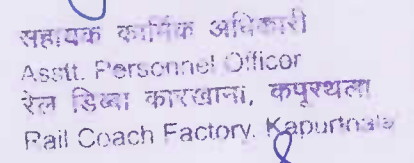 सहायक कार्मिक अधिकारी
Asstt. Personnel Officer
रेल डिब्बा कारखाना, कपूरथला
Rail Coach Factory, Kapurthala